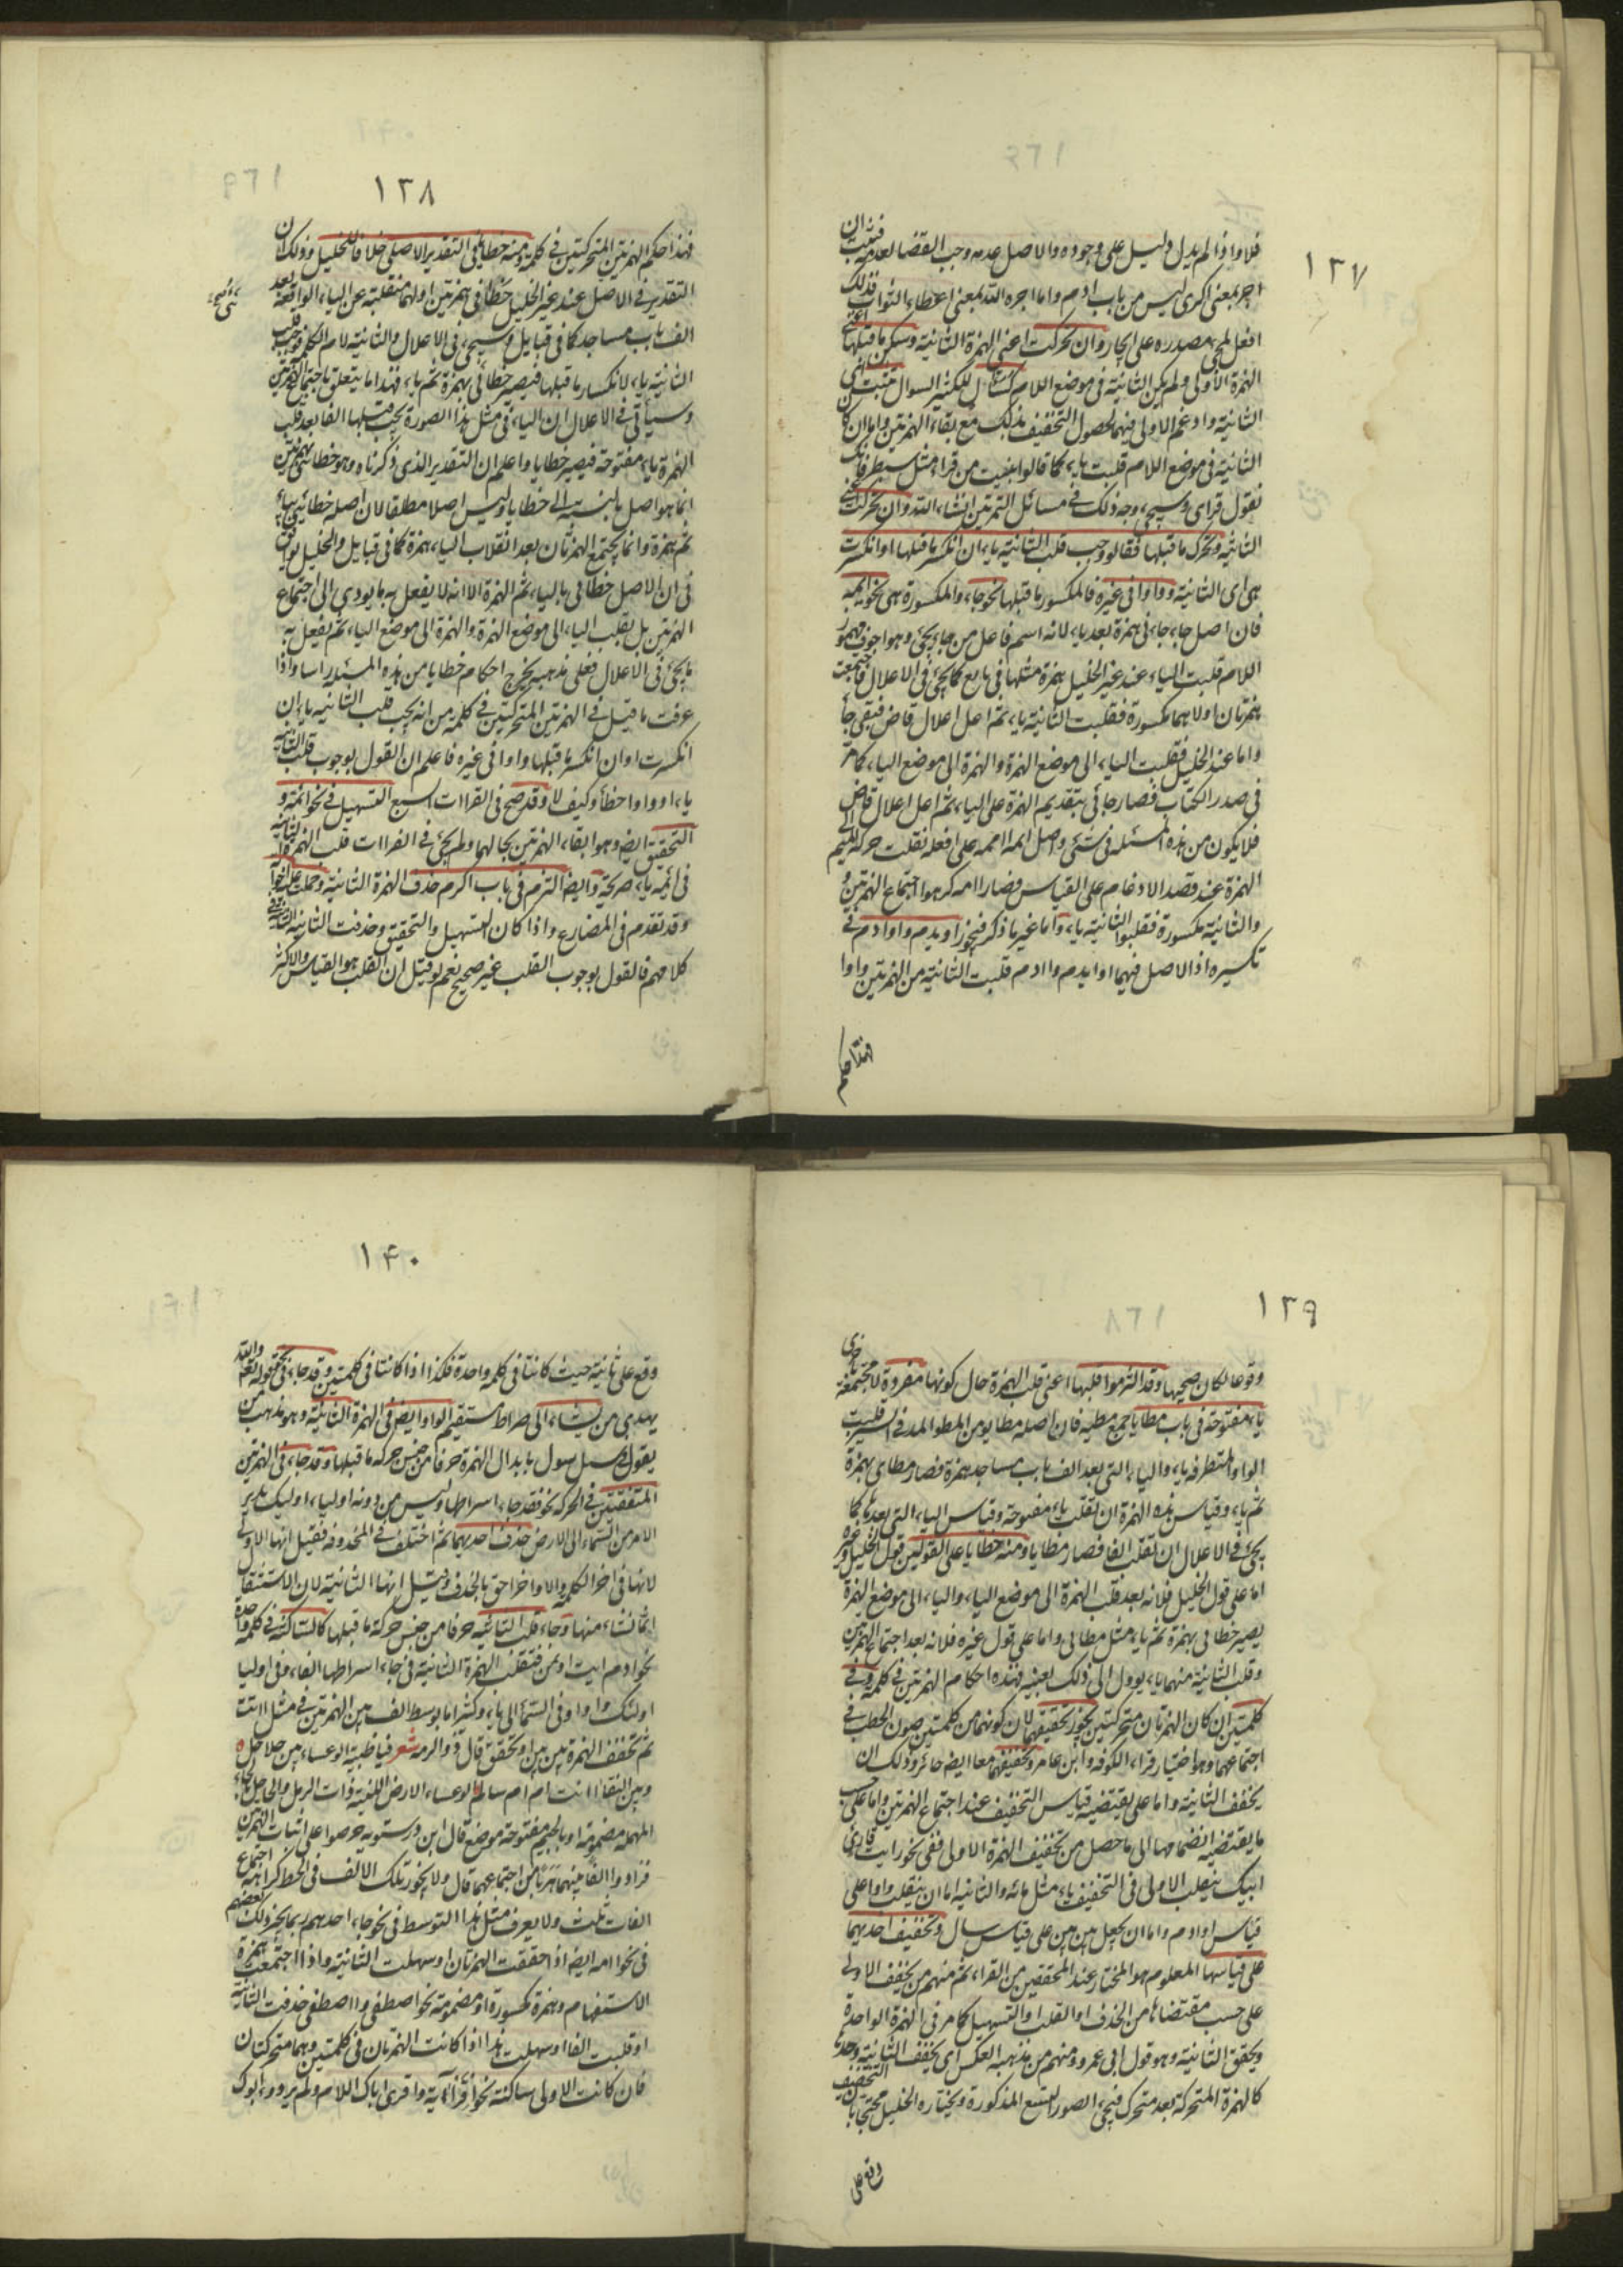 ١٣٧
فلا واذا لم يدل دليل على وجوده والاصل عدمه وجب القضا بعدمه فثبت ان
اجر بمعنى اكرى ليس من باب ادم واما اجره الله بمعنى اعطاه الثواب فذلك
افعل لمجئ مصدره على ايجار وان تحركت اعنى الهمزة الثانية وسكن ما قبلها اعنى
الهمزة الاولى ولم يكن الثانية فى موضع اللام كسئال للكثير السوال تثبت اى
الثانية وادغم الاولى فيها لحصول التخفيف بذلك مع بقاء الهمزتين واما ان كان
الثانية فى موضع اللام قلبت ياء كما قالوا بنيت من قرا مثل سبطر فانك
نقول قراى وسيجئ وجه ذلك فى مسائل التمرين انشاء الله وان تحركت اعنى
الثانية وتحرك ما قبلها فقالو وجب قلب الثانية ياء ان انكسر ما قبلها او انكسرت
هى اى الثانية وواوا فى غيره فالمكسور ما قبلها نحو جاء والمكسورة هى نحو ائمه
فان اصل جاء جائى بهمزة بعد ياء لانه اسم فاعل من جاء يجئ وهو اجوف مهموز
اللام قلبت الياء عند غير الخليل همزة مثلها فى بايع كما يجئ فى الاعلال فاجتمعت
همزتان اولاهما مكسورة فقلبت الثانية ياء ثم اعل اعلال قاض فبقى جاء
واما عند الخليل فقلبت الياء الى موضع الهمزة والهمزة الى موضع الياء كما مر
فى صدر الكتاب فصار جائى بتقديم الهمزة على الياء ثم اعل اعلال قاض
فلا يكون من هذه المسئله فى شئى واصل ائمه ااممه على افعله نقلت حركة الميم الى
الهمزة عند قصد الادغام على القياس فصار اامه كرهوا اجتماع الهمزتين
والثانية مكسورة فقلبوا الثانية ياء واما غير ما ذكر فنحو اويدم واوادم فى
تكسيره اذ الاصل فيهما اايدم وا ادم قلبت الثانية من الهمزتين واوا
فهذا حكم
١٣٨
فهذا حكم الهمزتين المتحركتين فى كلمة ومنه خطايا فى التقدير الاصلى خلافا للخليل وذلك ان
التقدير فى الاصل عند غير الخليل خطائى بهمزتين اولهما منقلبة عن الياء الواقعة بعد
الف باب مساجد كما فى قبايل وسيجئ فى الاعلال والثانية لام الكلمة فوجب قلب
الثانية ياء لانكسار ما قبلها فيصير خطائى بهمزة ثم ياء فهذا ما يتعلق باجتماع الهمزتين
وسيأتى فى الاعلال ان الياء فى مثل هذا الصورة يجب قلبها الفا بعد قلب
الهمزة ياء مفتوحة فيصير خطايا واعلم ان التقدير الذى ذكرناه وهو خطائئ بهمزتين
انما هو اصل بالنسبة الى خطايا وليس اصلا مطلقا لان اصله خطايئ بياء
ثم همزة وانما يجتمع الهمزتان بعد انقلاب الياء همزة كما فى قبايل والخليل يوافق
فى ان الاصل خطائى بالياء ثم الهمزة الا انه لا يفعل به ما يودى الى اجتماع
الهمزتين بل يقلب الياء الى موضع الهمزة والهمزة الى موضع الياء ثم يفعل به
ما يجئ فى الاعلال فعلى مذهبه يخرج احكام خطايا من هذه المسئله راسا واذا
عرفت ما قيل فى الهمزتين المتحركتين فى كلمة من انه يجب قلب الثانيه ياء ان
انكسرت او ان انكسر ما قبلها وواوا فى غيره فاعلم ان القول بوجوب قلب الثانية
ياء او واوا خطأ وكيف لا وقد صح فى القراات السبع التسهيل فى نحو ائمة و
التحقيق ايضا وهو ابقاء الهمزتين بحالهما ولم يجئ فى القراات قلب الهمزة الثانيه
فى ائمه ياء صريحة وايضا التزم فى باب اكرم حذف الهمزة الثانية وحملت عليه اخواته
وقد تقدم فى المضارع واذا كان التسهيل والتحقيق وحذفت الثانية الثابتة فى
كلامهم فالقول بوجوب القلب غير صحيح نعم لو قيل ان القلب هو القياس والاكثر
١٣٩
وقوعا لكان صحيحا وقد التزموا قلبها اعنى قلب الهمزة حال كونها مفردة لا مجتمعة
ياء مفتوحة فى باب مطايا جمع مطيه فان اصله مطايو من المطو المد فى السير قلبت
الواو المتطرفه ياء والياء التى بعد الف باب مساجد همزة فصار مطائى بهمزة
ثم ياء وقياس هذه الهمزة ان تقلب ياء مفتوحة وقياس الياء التى بعدها كما
يجئ فى الاعلال ان تقلب الفا فصار مطايا ومنه خطايا على القولين قول الخليل وغيره
اما على قول الخليل فلانه بعد قلب الهمزة الى موضع الياء والياء الى موضع الهمزة
يصير خطائى بهمزة ثم ياء مثل مطائى واما على قول غيره فلانه بعد اجتماع الهمزتين
وقلب الثانية منهما ياء يوول الى ذلك بعينه فهذه احكام الهمزتين فى كلمة وفى
كلمتين ان كان الهمزتان متحركتين يجوز تحقيقهما لان كونهما من كلمتين يهون الخطب فى
اجتماعهما وهو اختيار قراء الكوفه وابن عامر وتخفيفهما معا ايضا جائز وذلك ان
يخفف الثانية واما على يقتضيه قياس التخفيف عند اجتماع الهمزتين واما على حسب
ما يقتضيه انضمامها الى ما حصل من تخفيف الهمزة الاولى ففى نحو رايت قارئ
ابيك ينقلب الاولى فى التخفيف ياء مثل مائه والثانيه اما ان ينقلب واوا على
قياس اوادم واما ان يجعل بين بين على قياس سال وتخفيف احديهما
على قياسها المعلوم هو المختار عند المحققين من القراء ثم منهم من يخفف الاولى
على حسب مقتضاها من الحذف او القلب او التسهيل كما مر فى الهمزة الواحدة
ويحقق الثانية وهو قول ابى عمرو ومنهم من مذهبه العكس اى يخفف الثانية وحدها
كالهمزة المتحركة بعد متحرك فيجئ الصور التسع المذكورة ويختاره الخليل محتجا بان التخفيف
وقع على
١٤٠
وقع على ثانية حيث كانتا فى كلمه واحدة فكذا اذا كانتا فى كلمتين وقد جاء فى نحو قوله تعه والله
يهدى من يشاء الى صراط مستقيم الواو ايضا فى الهمزة الثانية وهو مذهب من
يقول سل سول بابدال الهمزة حرفا من جنس حركه ما قبلها وقد جاء فى الهمزتين
المتفقتين فى الحركه نحو فقد جاء اسراطها وليس من دونه اولياء اوليك يدبر
الامر من السماء الى الارض حذف احديهما ثم اختلف فى المحذوفه فقيل انها الاولى
لانها فى اخر الكلمه والاواخر احق بالحذف وقيل انها الثانية لان الاستثقال
انما نشاء منها وجاء قلب الثانيه حرفا من جنس حركة ما قبلها كالساكنة فى كلمه واحدة
نحو ادم ايت اوتمن فتقلب الهمزة الثانية فى جاء اسراطها الفا وفى اوليا
اولئك واوا وفى السمأ الى ياء وكثيرا ما يوسط الف بين الهمزتين فى مثل اانت
ثم تخفف الهمزة بين بين او تحقق قال ذو الرمه شعر فيا ظبية الوعساء بين جلاجل ه
وبين النقا اانت ام ام سالم الوعساء الارض اللينة ذات الرمل والحلاحل بالحاء
المهمله مضمومة او بالجيم مفتوحة موضع قال ابن درستويه حرصوا على اثبات الهمزتين
فزادوا الفا بينهما هربا من اجتماعهما قال ولا يجوز تلك الالف فى الخط كراهة اجتماع
الفات ثلث ولا يعرف مثل هذا التوسط فى نحو جاء احدهم ربما يجئ ذلك بعضهم
فى نحو اامه ايضا اذا حققت الهمزتان او سهلت الثانية واذا اجتمعت همزة
الاستفهام وهمزة مكسورة او مضمومة نحو اصطفى و ااصطفى حذفت الثانية
او قلبت الفا او سهلت هذا اذا كانت الهمزتان فى كلمتين وهما متحركتان
فان كانت الاولى ساكنة نحو اقرأ آية واقرى اباك السلام ولم يردوء ابوك